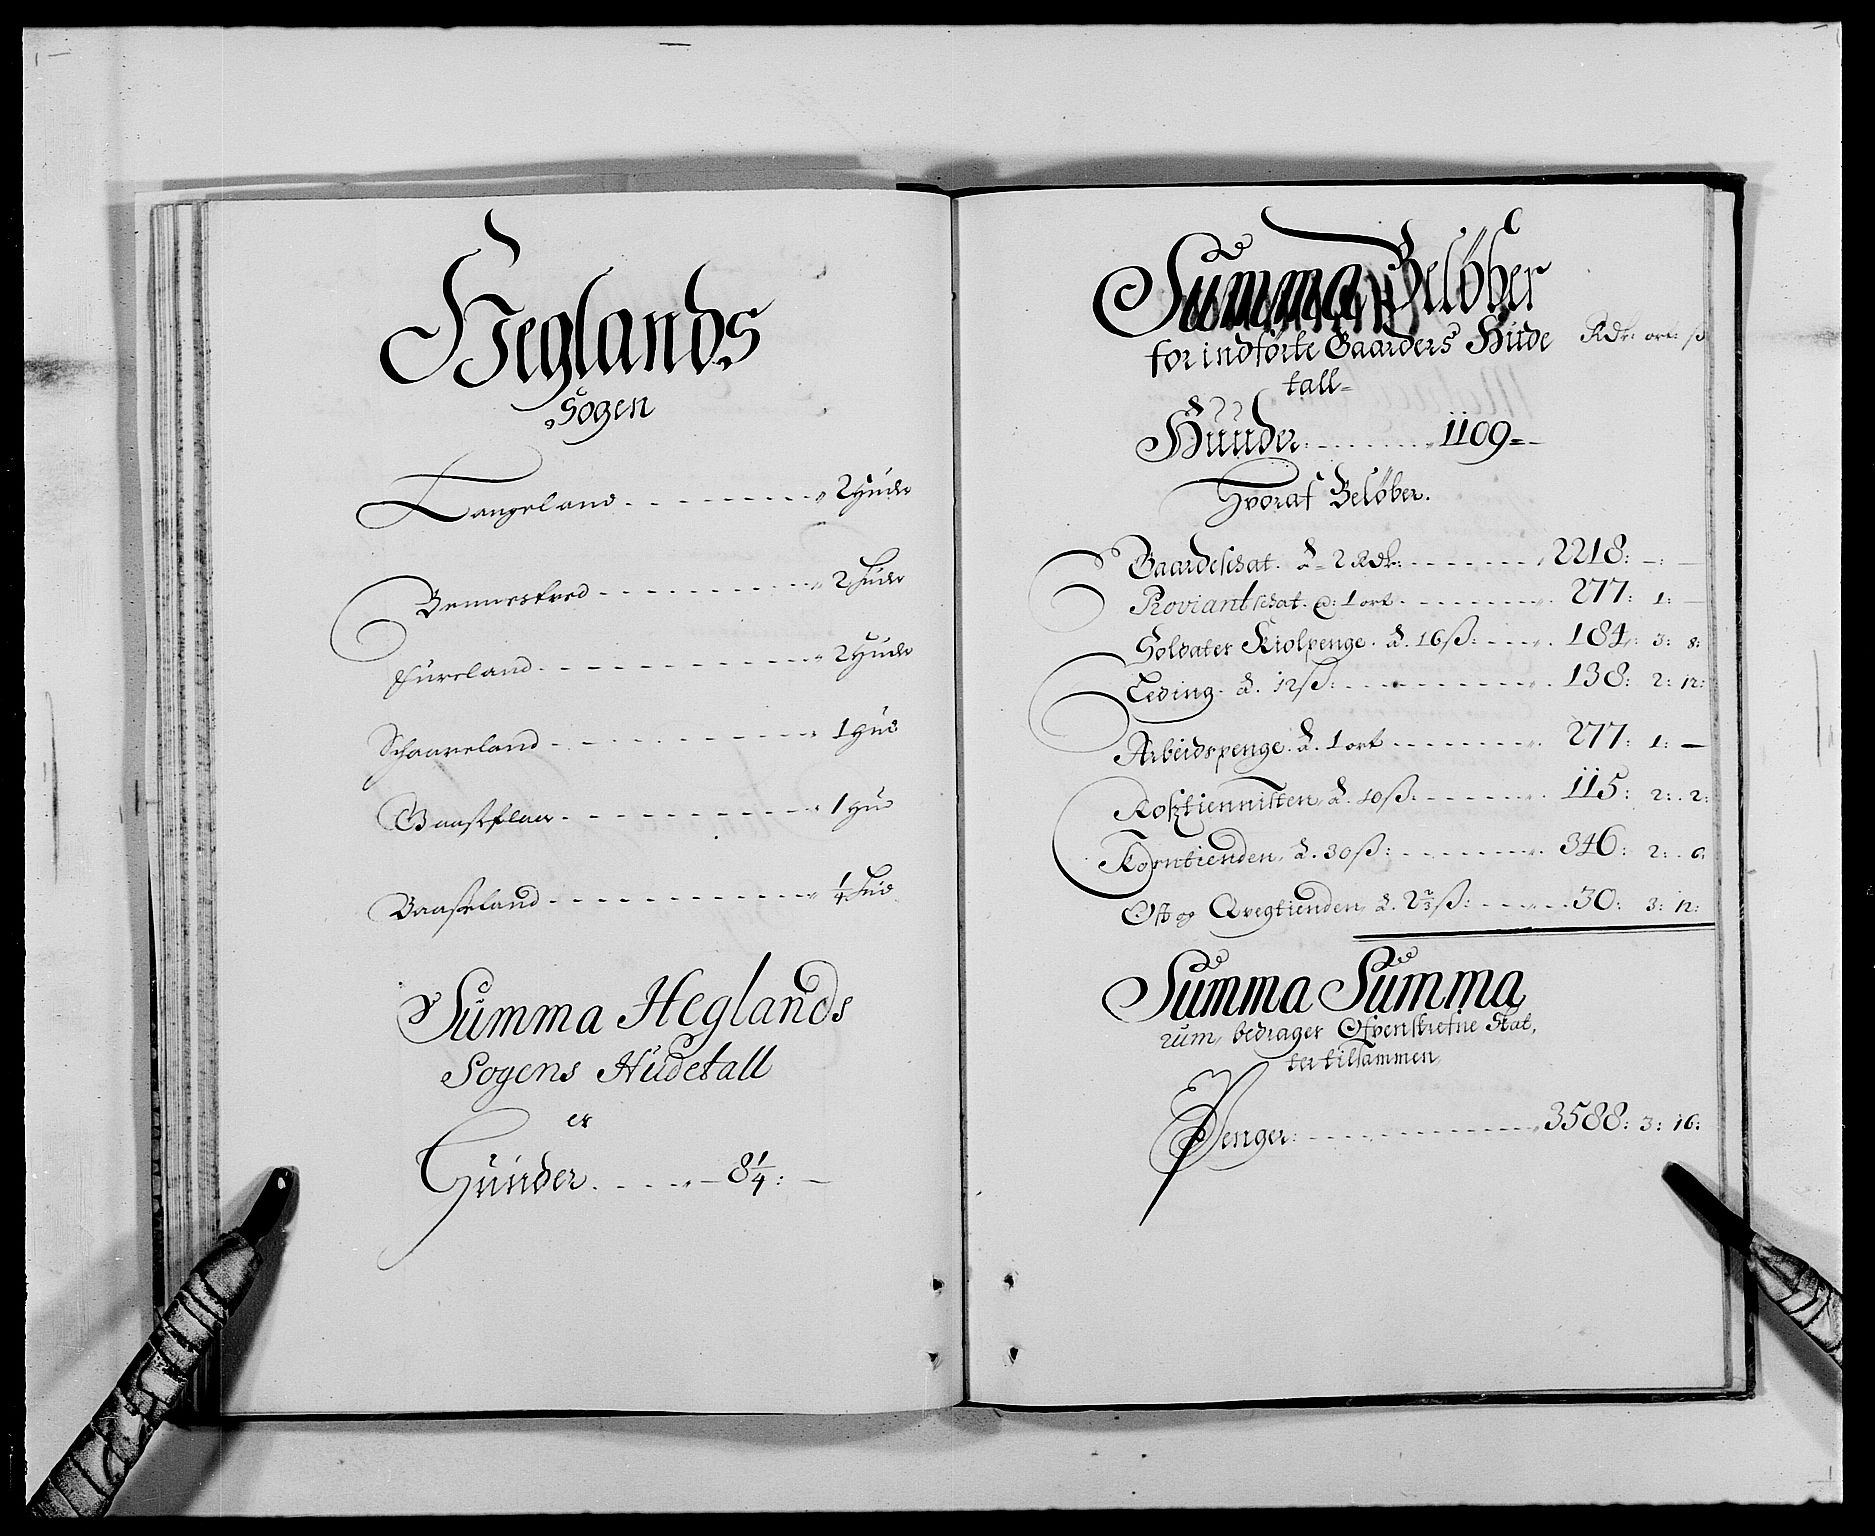 Heglands
Sogen
Tangeland - - - - - 2 Huder
Bennestved - - - - - 2 Huder
Fureland - - - - - 2 Huder
Schaareland - - - - - 1 Hud
- - - - - 1 Hud
- - - - - ¼ Hud
Summa Heglands
Sogens Hudetall
er
Huuder - - - - 8¼: -
Summa Belöber
for indförte Gaarders Hude Rdr: ort: ß
tall=
Huuder: - - - - 1109=-
Hvoraf Belöber.
Gaardeschat. â. 2 Rdr: - - - - 2218: -: -
Proviantschat. â: 1 ort - - - - 277: 1: -
Soldater Kiolpenge. â. 16 ß: - - - - 184: 3: 8:
Leding. â. 12 ß: - - - - 138: 2: 12:
Arbeidspenge. â. 1 ort - - - - 277: 1: -
Rosztiennisten, â. 10 ß: - - - - 115: 2: 2:
Korntienden, â. 30 ß: - - - - 346: 2: 6:
Ost og Qvegtienden, â. 2⅔ ß: - - - - 30: 3: 12:
Summa Summa
rum, bedrager Ofvenskrefne Skat,
ter tilsammen
Penger: - - - - 3588: 3: 16: